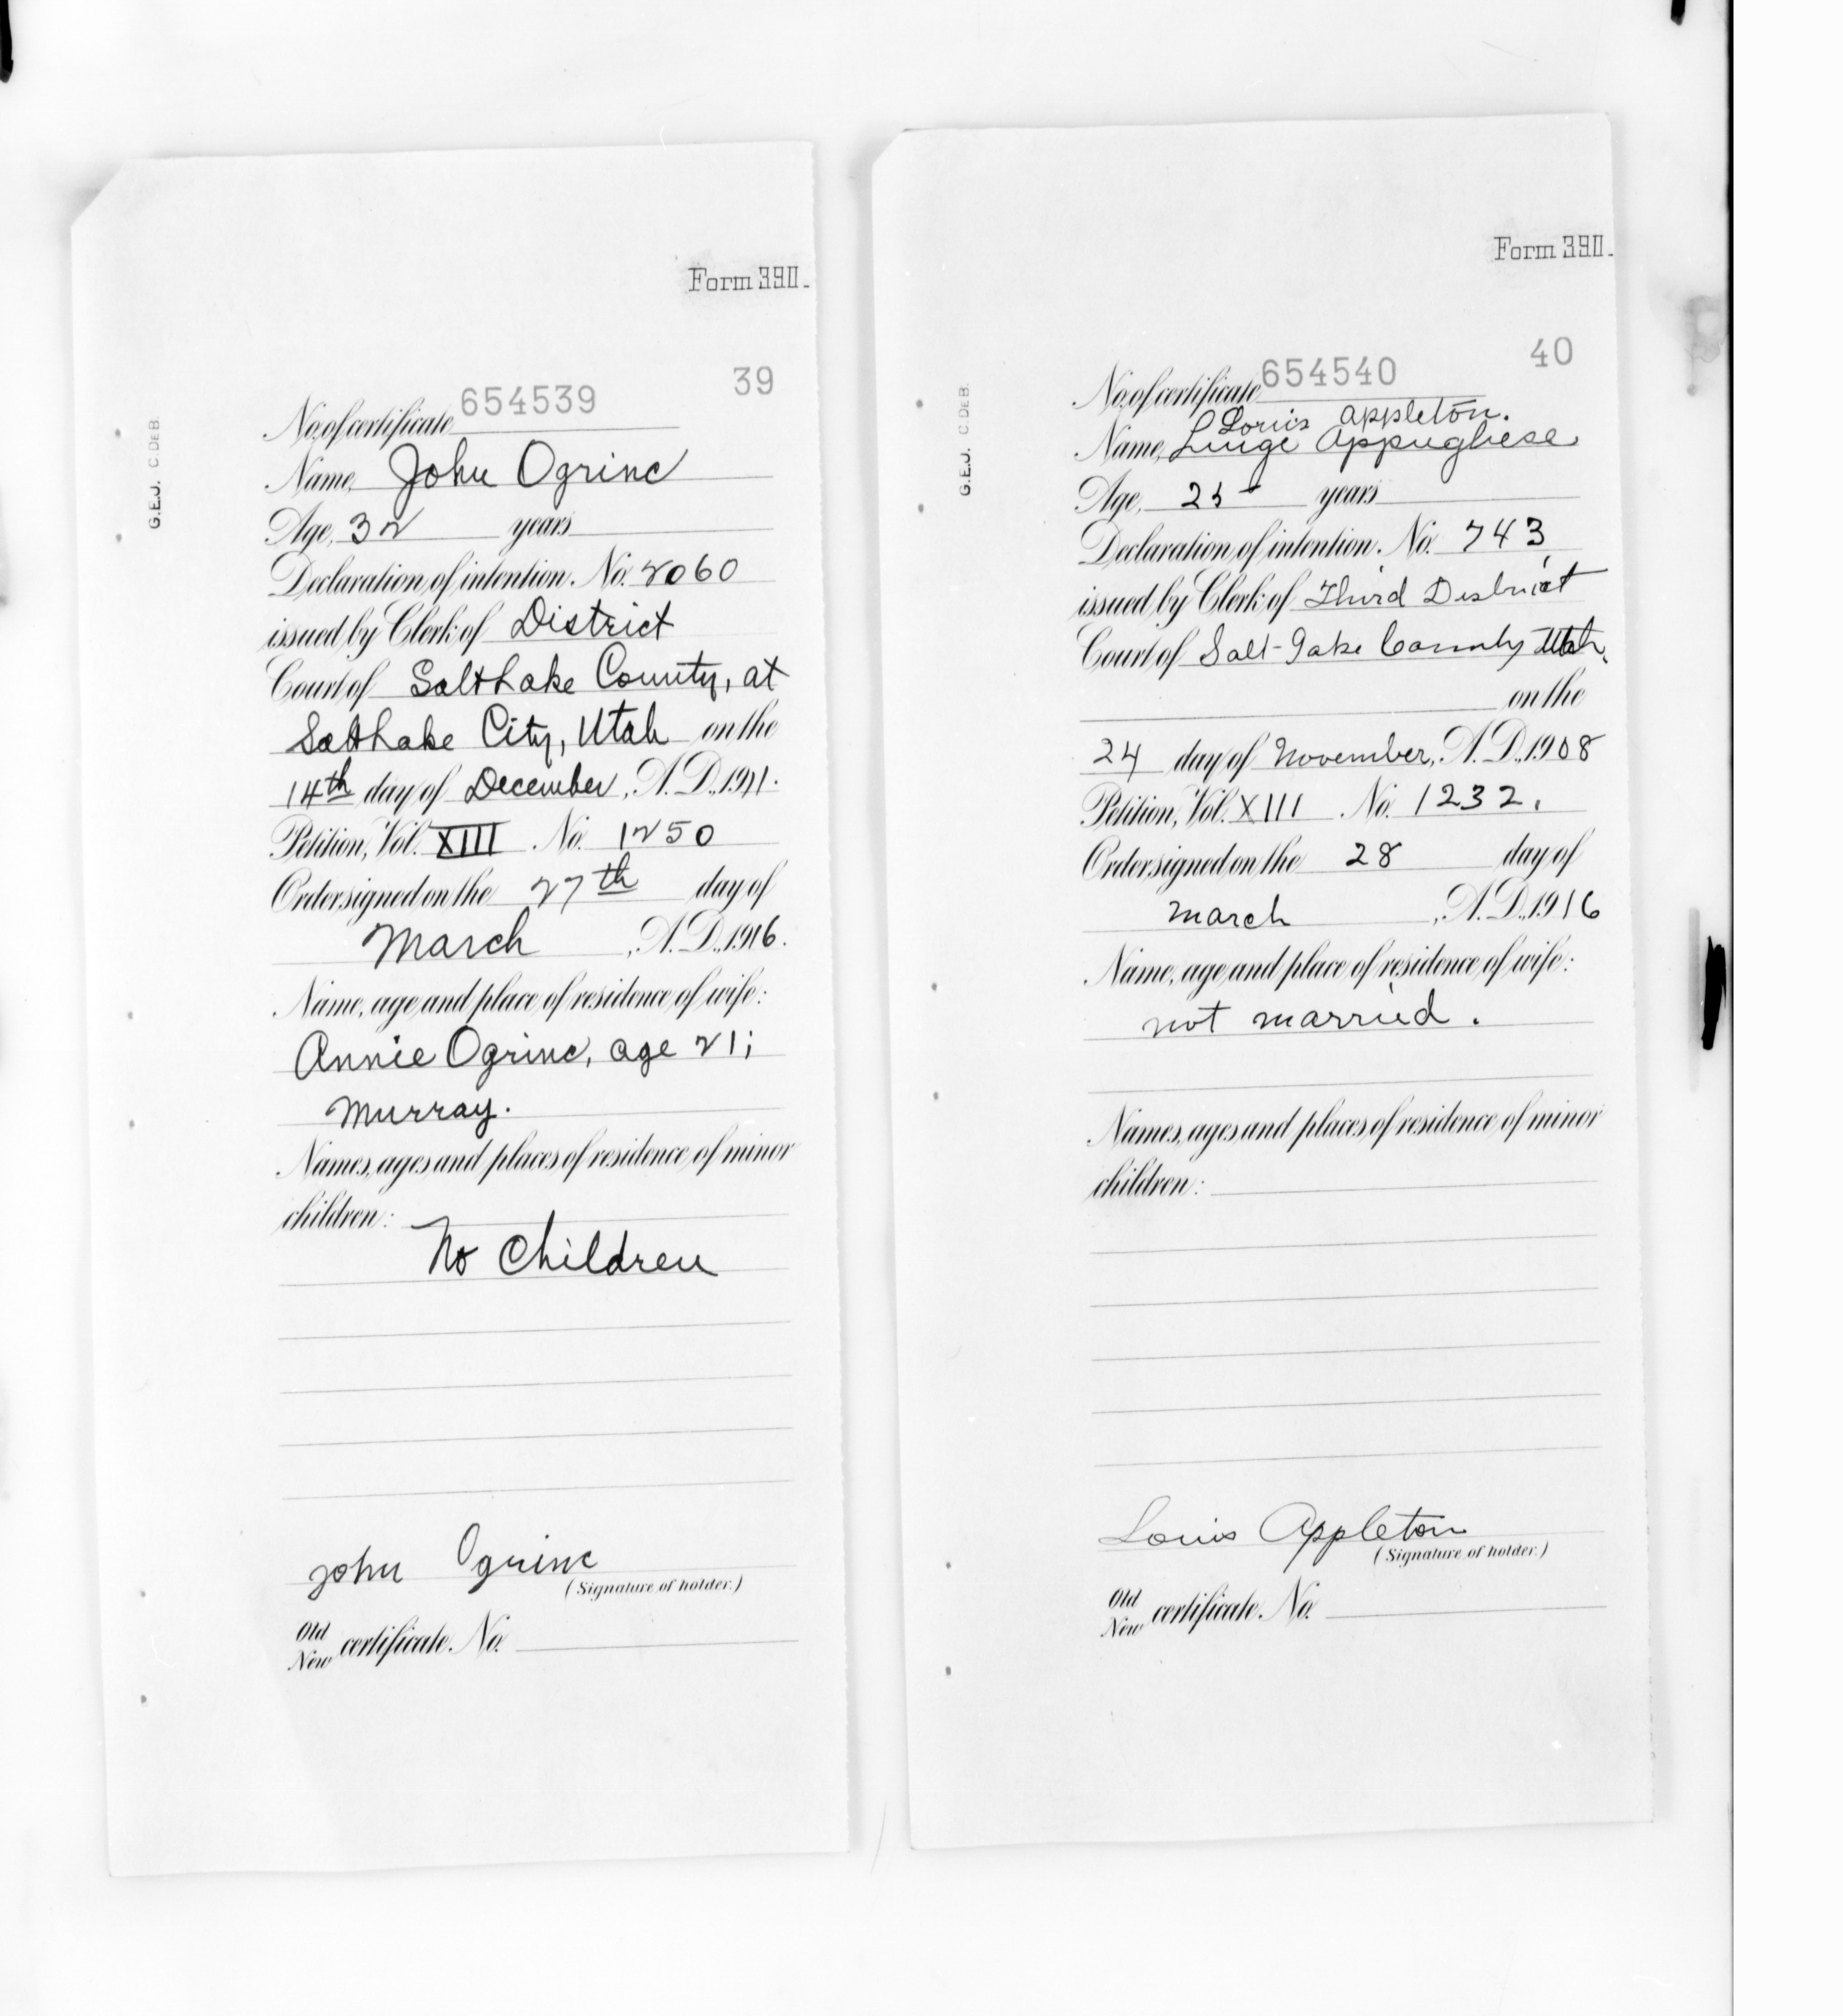 Form 390.
39
No. of certificate 654539
Name, John Ogrinc
Age, 32 years
Declaration of intention. No. 2060
issued by Clerk of District
Court of Salt Lake County, at
Salt Lake City, Utah on the
14th day of December, A. D., 1911.
Petition, Vol. XIII No. 1250
Order signed on the 27th day of
March, A. D., 1916.
Name, age and place of residence of wife:
Annie Ogrinc, age 21;
Murray.
Names, ages and places of residence of minor
children:
No Children
John Ogrinc
(Signature of holder.)
Old
New certificate. No.
G.E.J. C.DEB.
Form 390.
40
No. of certificate 654540
Louis Appleton.
Name, Luige Appugliese
Age, 25 years
Declaration of intention. No. 743
issued by Clerk of Third District
Court of Salt Lake County Utah.
on the
24 day of November, A. D., 1908
Petition, Vol. XIII No. 1232.
Order signed on the 28 day of
March, A. D., 1916
Name, age and place of residence of wife:
not married.
Names, ages and places of residence of minor
children:
Louis Appleton
(Signature of holder.)
Old
New certificate. No.
G.E.J. C.DEB.